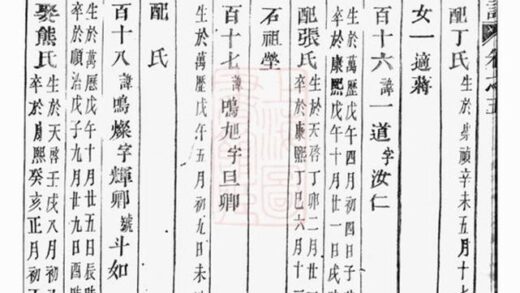 卷之五
配丁氏 生於崇禎辛未五月十七
女一適蔣
百十六 諱一道 字汝仁
生於萬曆戊午四月初四日子
卒於康熙戊午十月廿一日戌
配張氏 生於天啓丁卯二月廿
卒於康熙丁巳六月十
石祖塋
百十七 諱鳴旭字旦卿
生於萬歷戊午五月初九日未
配 氏
百十八 諱鳴燦字輝卿 號斗如
生於萬歷戊午十月廿五日辰
卒於順治戊子九月廿九日酉
娶熊氏 生於天啓壬戌八月
卒於康熙癸亥正月初